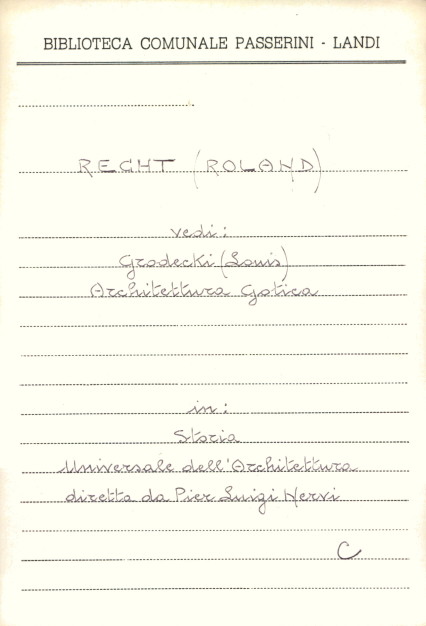 BIBLIOTECA COMUNALE PASSERINI - LANDI
RECHT (ROLAND)
vedi:
Grodecki (Louis)
Architettura Gotica
in:
Storia
Universale dell'Architettura
diretta da Pier Luigi Nervi
C